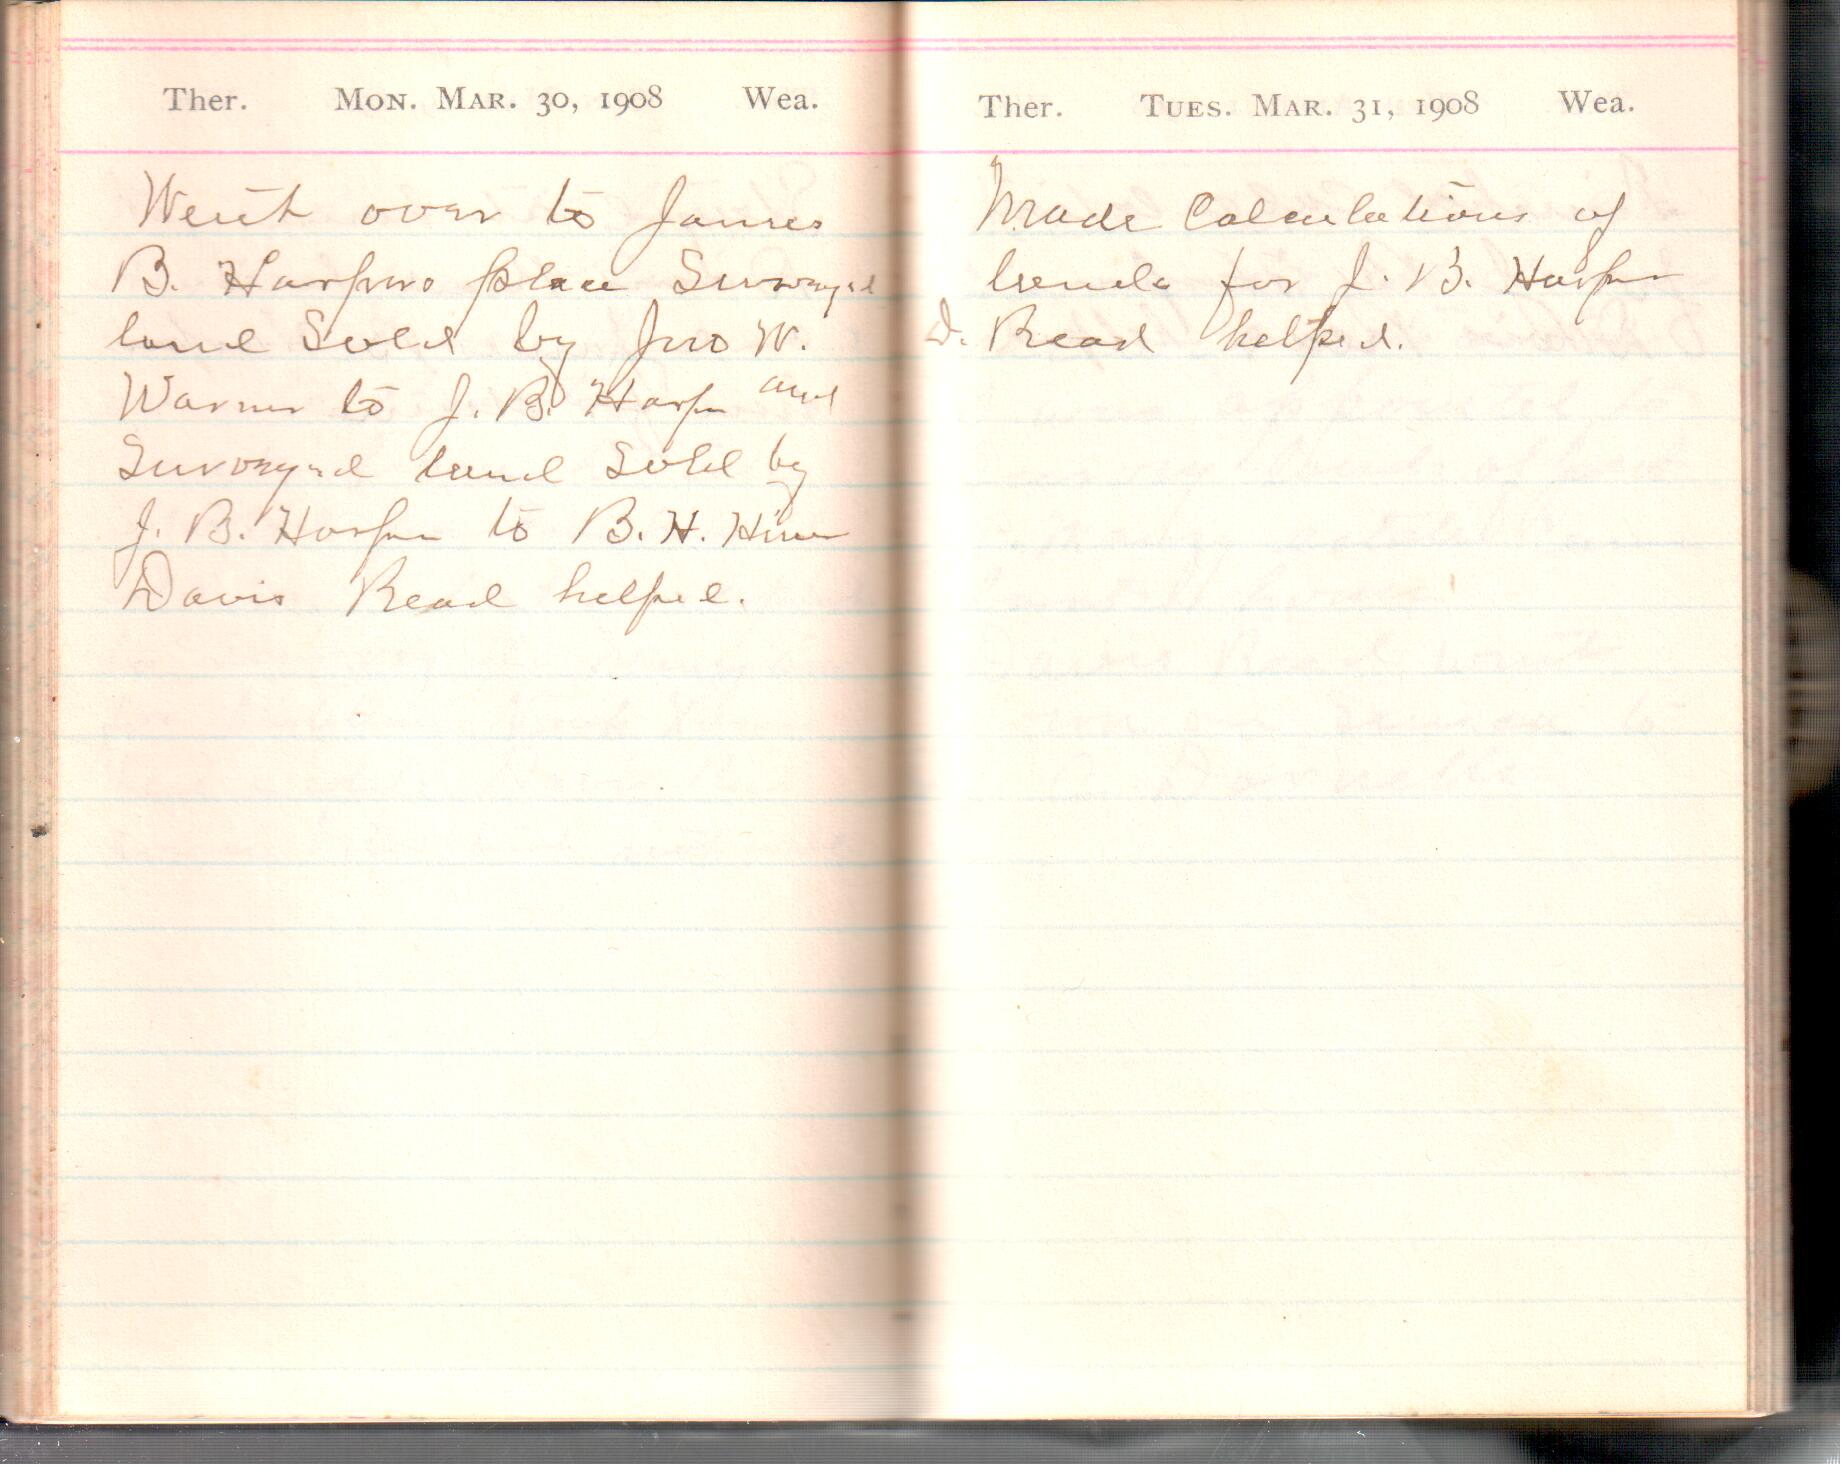 Ther. Mon. Mar. 30, 1908 Wea.
Went over to James
B. Harpers place Surveyed
land Sold by Jno W.
Warner to J. B. Harper and
Surveyed land Sold by
J. B. Harper to B. H.
Davis Read helped.
Ther. Tues. Mar. 31, 1908 Wea.
Made Calculations of
lands for J. B. Harper
D. Read helped.